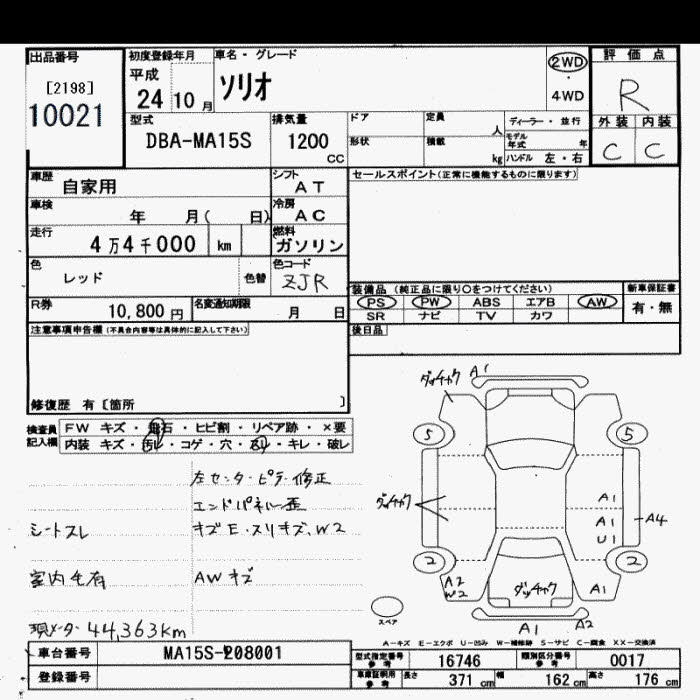 出品番号
[2198]
10021
初度登録年月
平成
24 10 月
車名・グレード
ソリオ
2WD
4WD
評価点
R
外装 内装
C C
型式
DBA-MA15S
排気量
1200
CC
ドア
形状
定員
人
積載
kg
ディーラー・並行
モデル年式 年
ハンドル 左・右
車歴
自家用
シフト
AT
セールスポイント(正常に機能するものに限ります)
車検
年 月( 日)
冷房
AC
走行
4万4千000 km
燃料
ガソリン
色
レッド
色替
色コード
ZJR
装備品 (純正品に限り○をつけてください)
PS PW ABS エアB AW
SR ナビ TV カワ
新車保証書
有・無
R券
10,800 円
名変通知期限
月 日
後日品
注意事項申告欄(不具合内容等は具体的に記入して下さい)
修復歴 有〔箇所 〕
検査員記入欄
FW キズ・飛石・ヒビ割・リペア跡・×要
内装 キズ・汚レ・コゲ・穴・スレ・キレ・破レ
左センターピラー修正
エンドパネル歪
シートスレ
キズE・スリキズ、W2
室内毛有
AWキズ
現メーター 44,363km
ダッチャク
A1
5
5
ダッチャク
A1
A1
U1
A4
2
2
A2
W2
ダッチャク
A1
スペア
A1
A2
A-キズ E-エクボ U-凹み W-補修跡 S-サビ C-腐食 XX-交換済
車台番号
MA15S-208001
登録番号
型式指定番号
参考
16746
類別区分番号
参考
0017
車庫証明用
参考
長さ 371 cm 幅 162 cm 高さ 176 cm